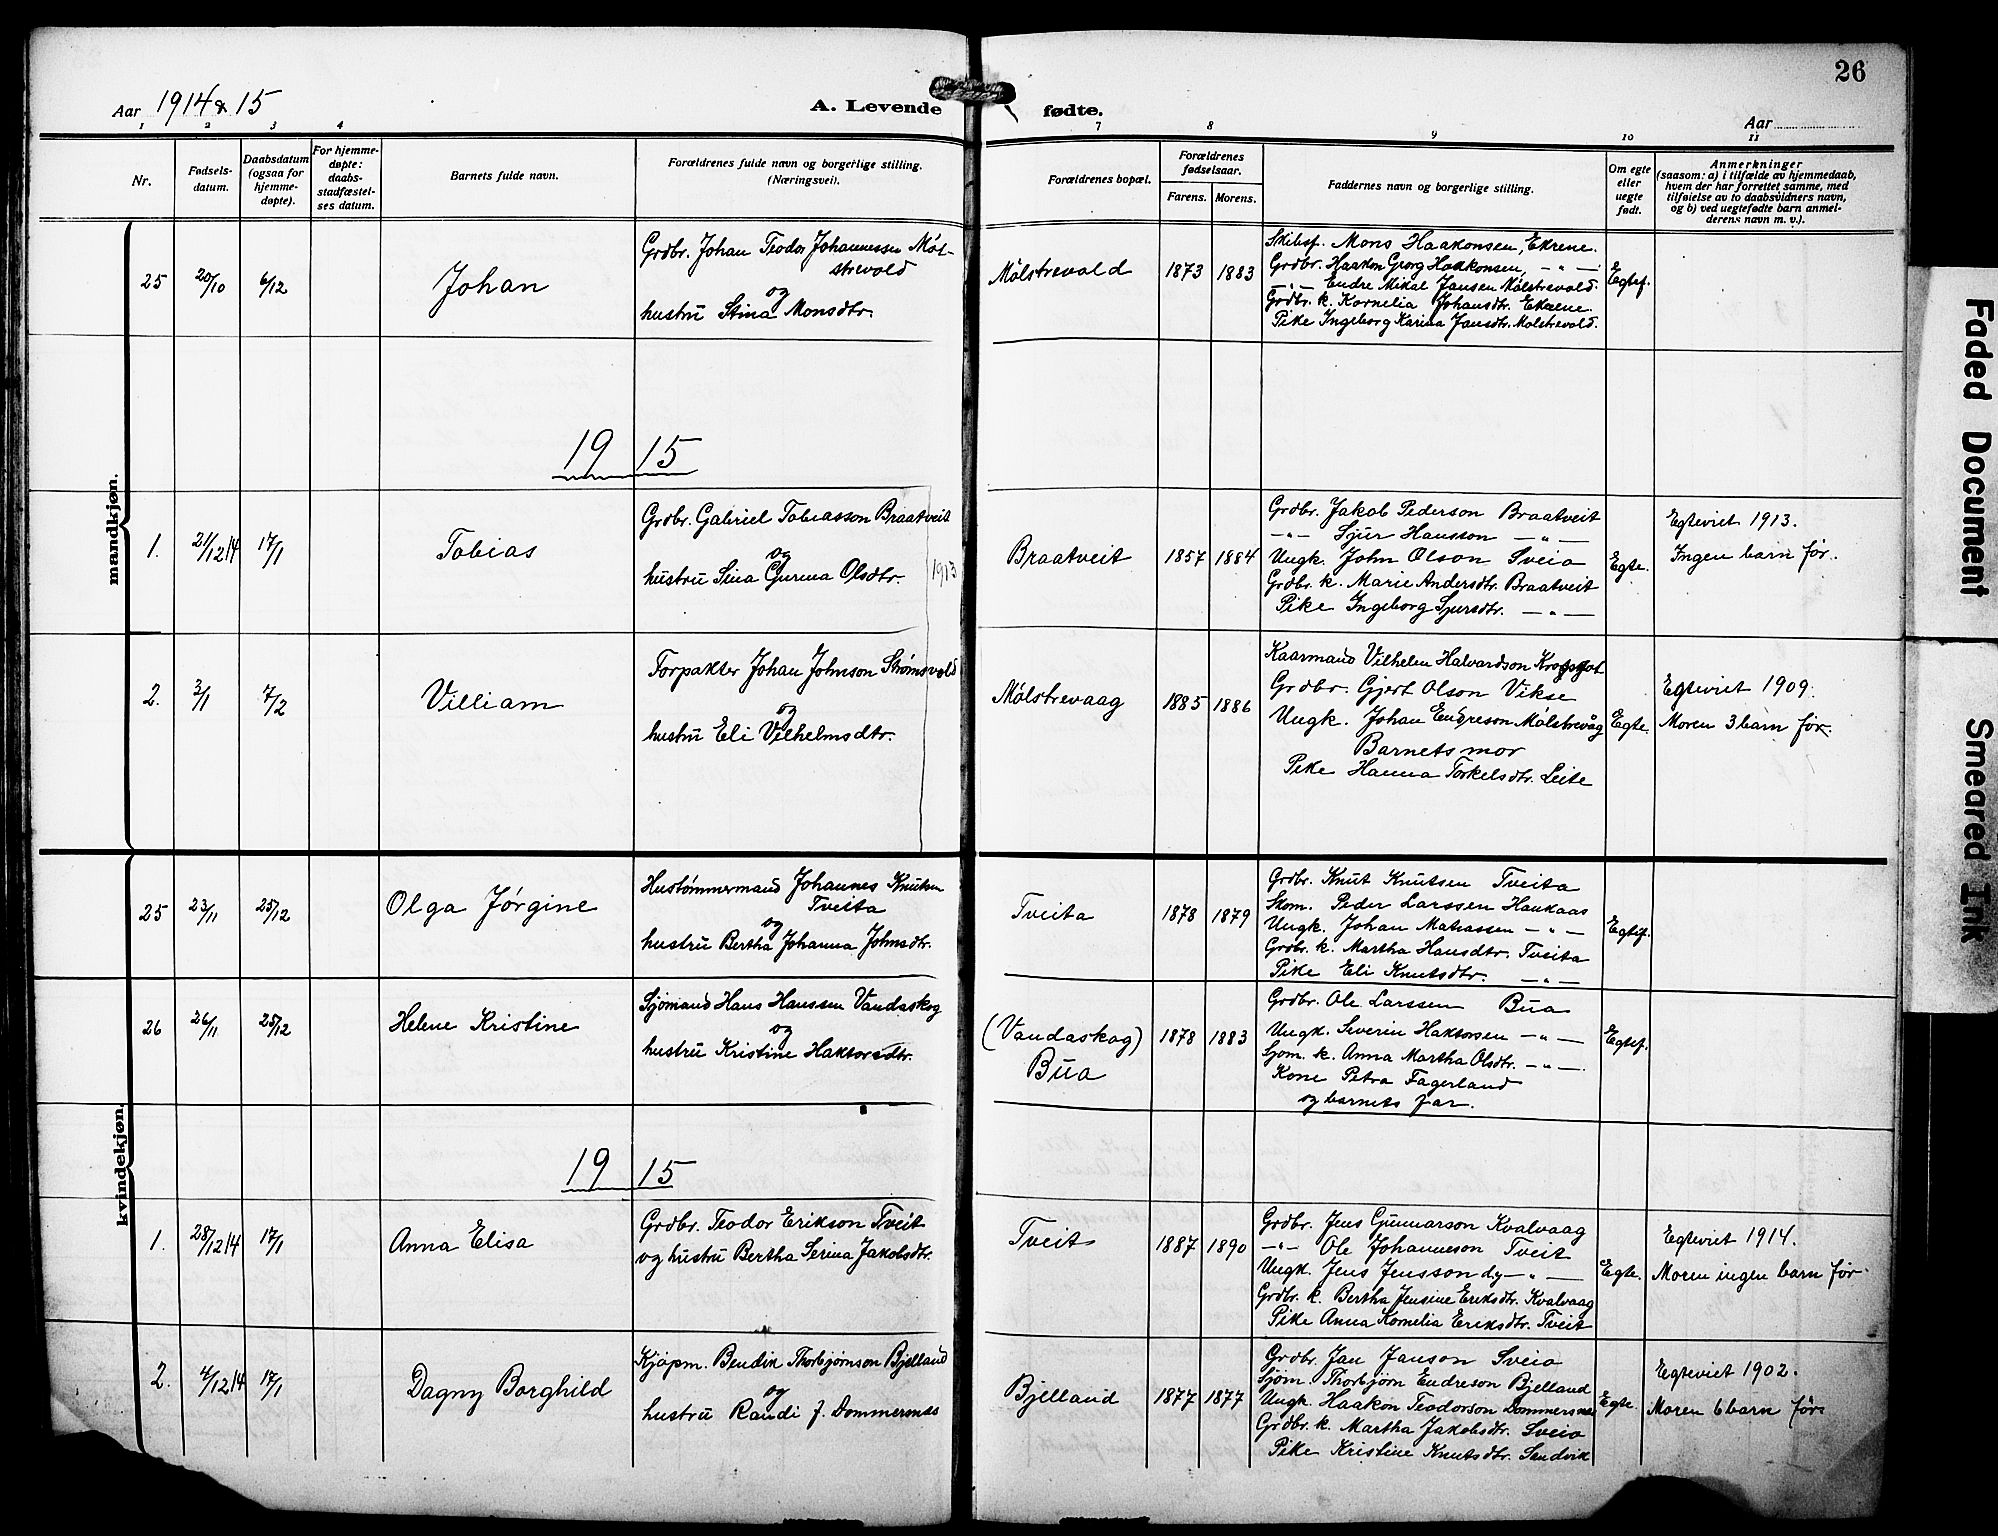 26
Aar 1914 & 15
A. Levende fødte.
Aar
1 2 3 4 7 8 9 10 11
Nr.
Fødsels-
datum.
Daabsdatum
(ogsaa for
hjemme-
døpte).
For hjemme-
døpte:
daabs-
stadfæstel-
ses datum.
Barnets fulde navn.
Forældrenes fulde navn og borgerlige stilling.
(Næringsvei).
Forældrenes bopæl.
Forældrenes
fødselsaar.
Farens. Morens.
Faddernes navn og borgerlige stilling.
Om egte
eller
uegte
født.
Anmerkninger
(saasom: a) i tilfælde av hjemmedaab,
hvem der har forrettet samme, med
tilføielse av to daabsvidners navn,
og b) ved uegtefødte barn anmel-
derens navn m. v.).
mandkjøn.
25 20/10 6/12 Johan
Grdbr. Johan Teodor Johannessen Møl-
strevold
og
hustru Stina Monsdtr.
Mølstrevold 1873 1883
Skibsf. Mons Haakonsen, Ekrene.
Grdbr. Haakon Georg Haakonsen, — " —
— " — Endre Mikal Jansen Mølstrevold.
Grdbr. k. Kornelia Johansdtr. Ekrene.
Pike Ingeborg Karina Jansdtr. Mølstrevold.
Egtef.
1915
1. 21/12 14 17/1 Tobias
Grdbr. Gabriel Tobiasson Braatveit
og
hustru Sina Gurina Olsdtr. 1913
Braatveit 1857 1884
Grdbr. Jakob Pederson Braatveit
— " — Sjur Hansson — " —
Ungk. John Olson Sveio
Grdbr. k. Marie Andersdtr. Braatveit
Pike Ingeborg Sjursdtr. — " —
Egte.
Egteviet 1913.
Ingen barn før.
2. 3/1 7/2 Villiam
Forpakter Johan Johnson Strømsvold
og
hustru Eli Vilhelmsdtr.
Mølstrevaag 1885 1886
Kaarmand Vilhelm Halvardson
Grdbr. Gjert Olson Vikse
Ungk. Johan Endreson Mølstrevåg
Barnets mor
Pike Hanna Torkelsdtr. Leite
Egte.
Egteviet 1909.
Moren 3 barn før.
kvindekjøn.
25 23/11 25/12 Olga Jørgine
Hustømmermand Johannes Knutsen
Tveita
og
hustru Bertha Johanna Johnsdtr.
Tveita 1878 1879
Grdbr. Knut Knutsen Tveita
Skom. Peder Larssen Haukaas
Ungk. Johan Matiassen — " —
Grdbr. k. Martha Hansdtr. Tveita
Pike Eli Knutsdtr. — " —
Egtef.
26 26/11 25/12 Helene Kristine
Sjømand Hans Hanssen Vandaskog
og
hustru Kristine Haktorsdtr.
(Vandaskog)
Bua
1878 1883
Grdbr. Ole Larssen Bua
Ungk. Severin Haktorsen — " —
Sjøm. k. Anna Martha Olsdtr. — " —
Kone Petra Fagerland
og barnets far.
Egtef.
1915
1. 28/12 14 17/1 Anna Elisa
Grdbr. Teodor Erikson Tveit
og hustru Bertha Serina Jakobsdtr.
Tveit 1887 1890
Grdbr. Jens Gunnarson Kvalvaag
— " — Ole Johanneson Tveit
Ungk. Jens Jensson dy — " —
Grdbr. k. Bertha Jensine Eriksdtr. Kvalvaag
Pike Anna Kornelia Eriksdtr. Tveit
Egte.
Egteviet 1914.
Moren ingen barn før.
2. 4/12 14 17/1 Dagny Borghild
Kjøpm. Bendik Thorbjørnson Bjelland
og
hustru Randi f. Dommersnes
Bjelland 1877 1877
Grdbr. Jan Janson Sveio
Sjøm. Thorbjørn Endreson Bjelland
Ungk. Haakon Teodorson Dommersnes
Grdbr. k. Martha Jakobsdtr. Sveio
Pike Kristine Knutsdtr. Sandvik
Egte.
Egteviet 1902.
Moren 6 barn før
Faded Document
Smeared Ink